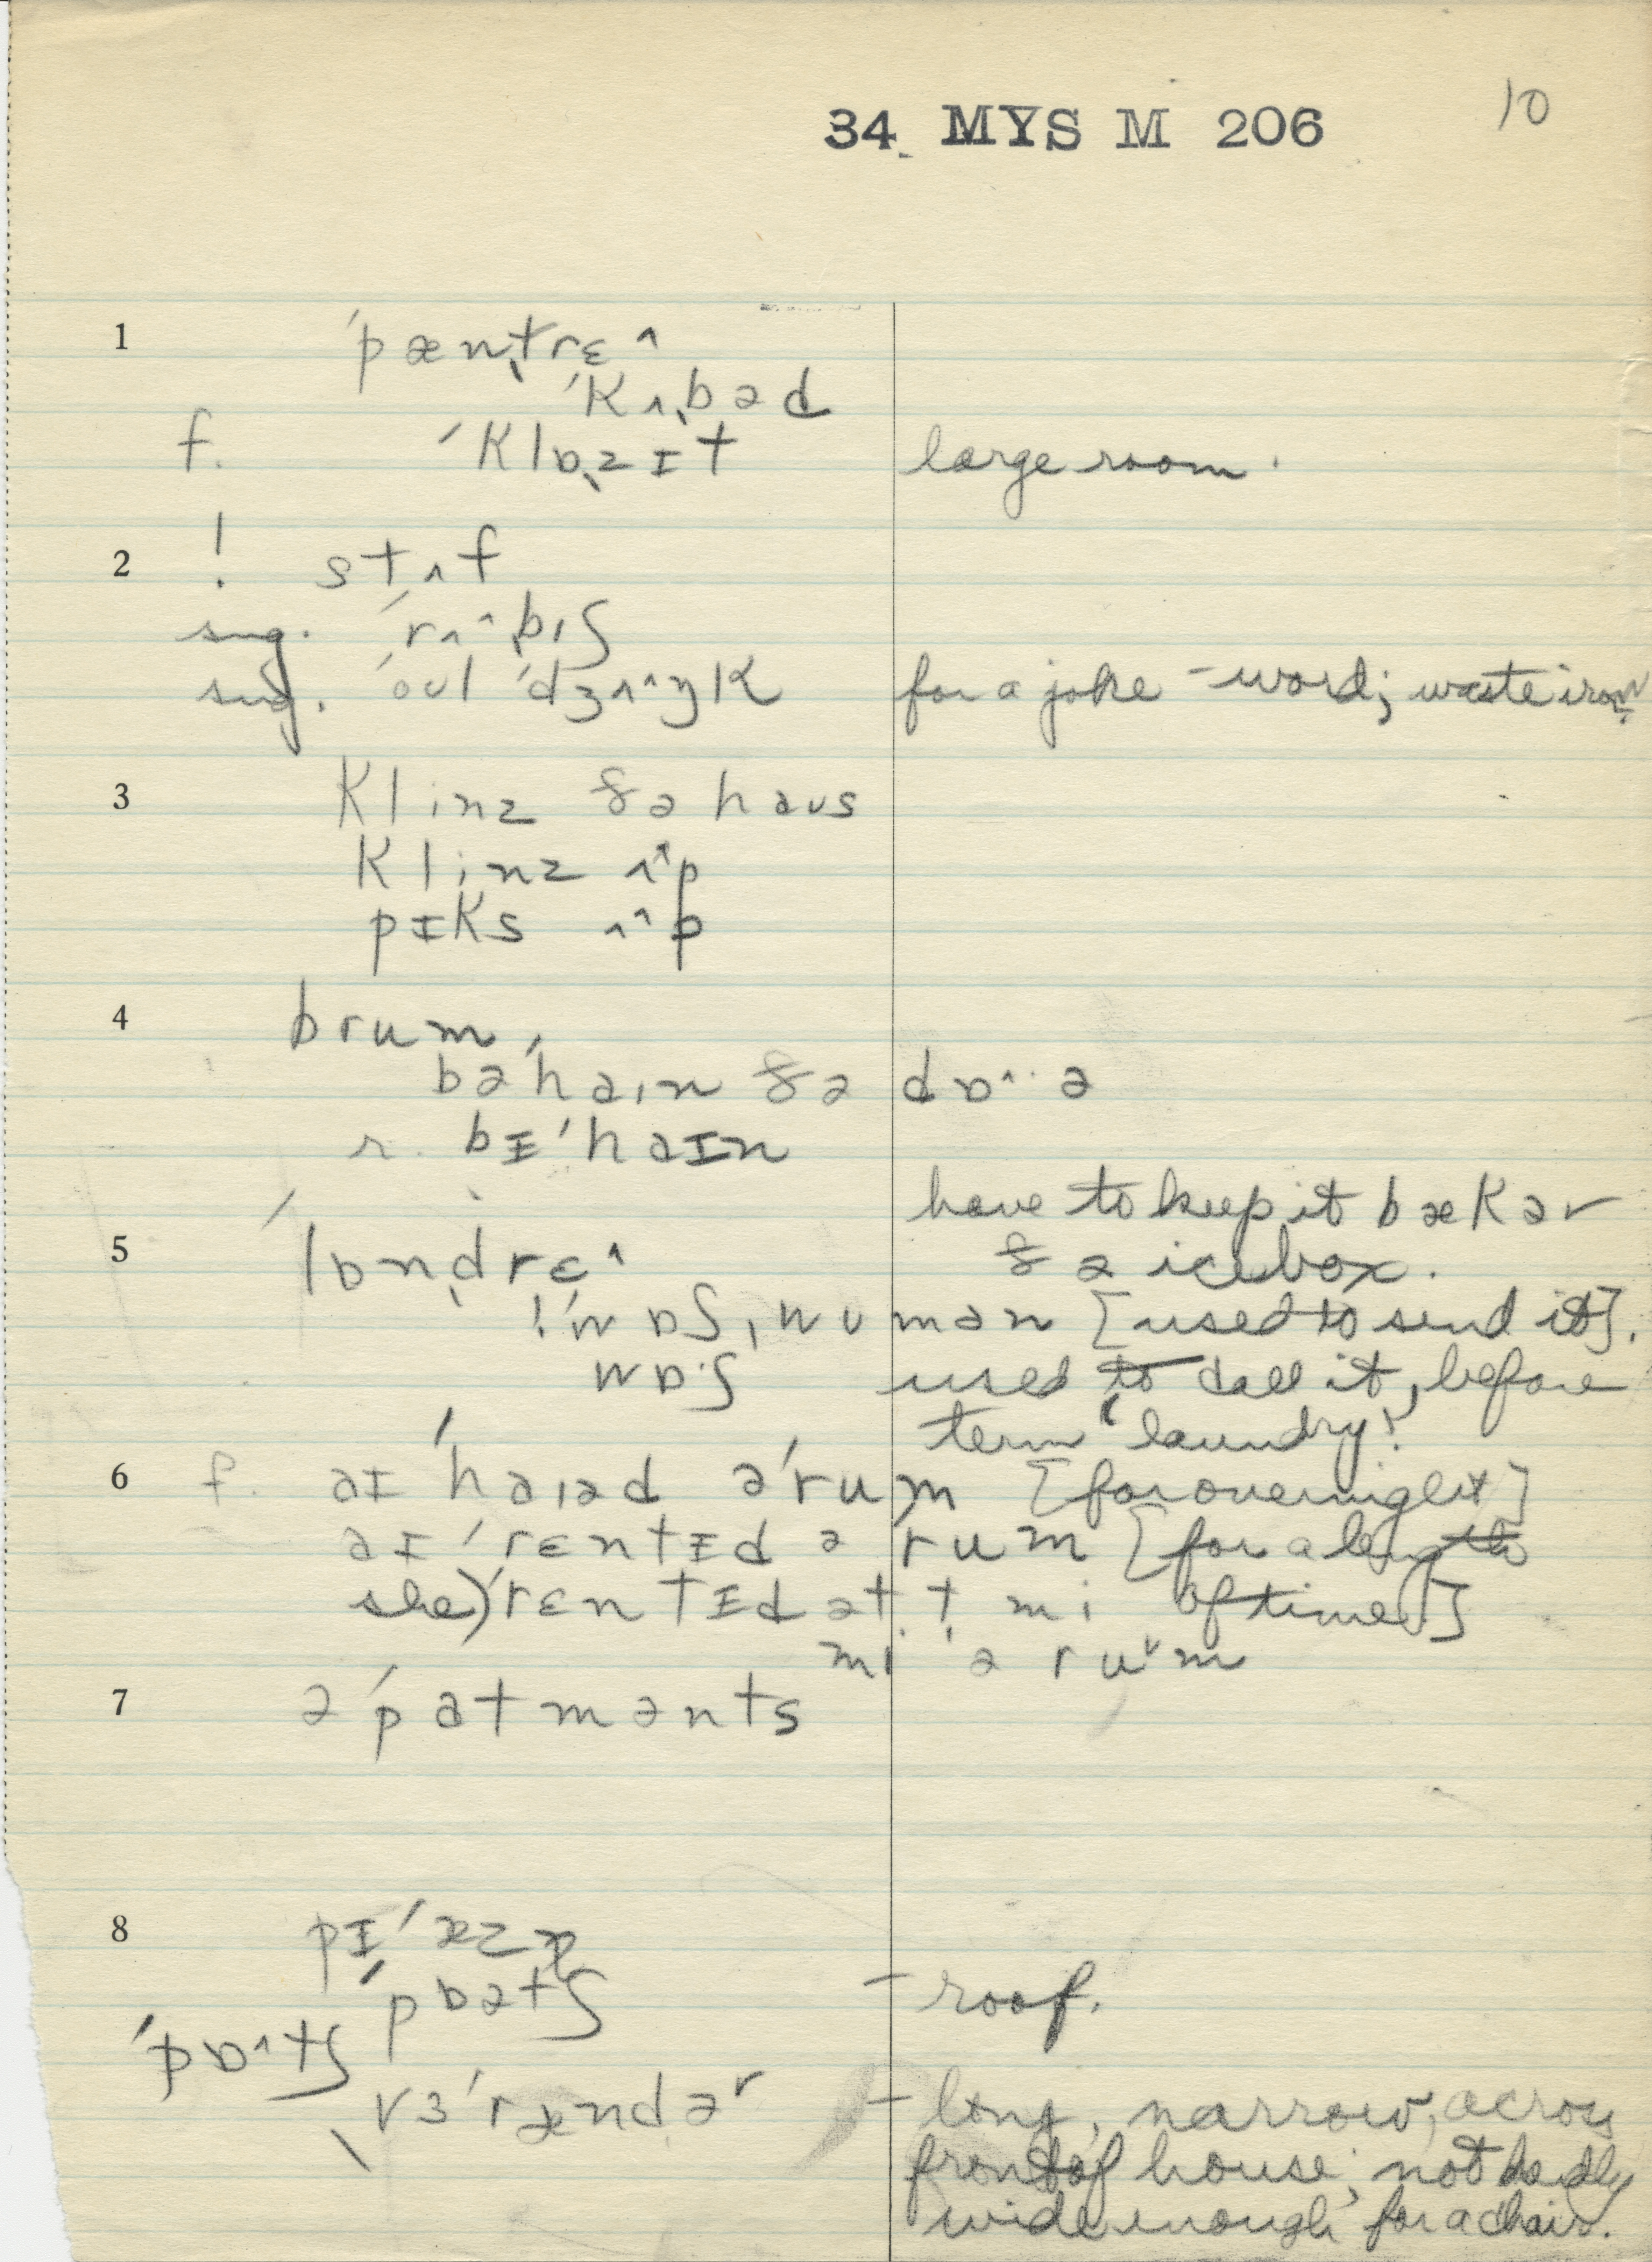 34 MYS M 206 10
1 ˈpæntrɛ^
ˈkʌbəd
f. ˈklɒzɪt large room.
2 ! stʌf
sug. ˈrʌ^bɪʃ
sug. ˈoʊl ˈdʒʌ^ŋk for a joke – word; waste iron
3 klinz ðə haʊs
klinz ʌ^p
pɪks ʌ^p
4 brum
bəˈhaɪn ðə dɒ^·ə
r. bɪˈhaɪn
have to keep it bækər
5 ˈlɒndrɛ^ ðə icebox.
! ˈwɒʃˌwumən [used to send it].
wɒ·ʃ used to call it, before
term 'laundry'.
6 f. aɪ ˈhaɪəd əˈrum [for overnight]
aɪ ˈrɛntɪd ə rum [for a length
she) ˈrɛntɪd ət t mi of time]
mi ə ruᵛm
7 əˈpatmənts
8 pɪˈæzə
ˈpɒətʃ – roof.
ˈpɒ^tʃ
vɜˈrændəʳ – long, narrow, across
front of house; not hardly
wide enough for a chair.